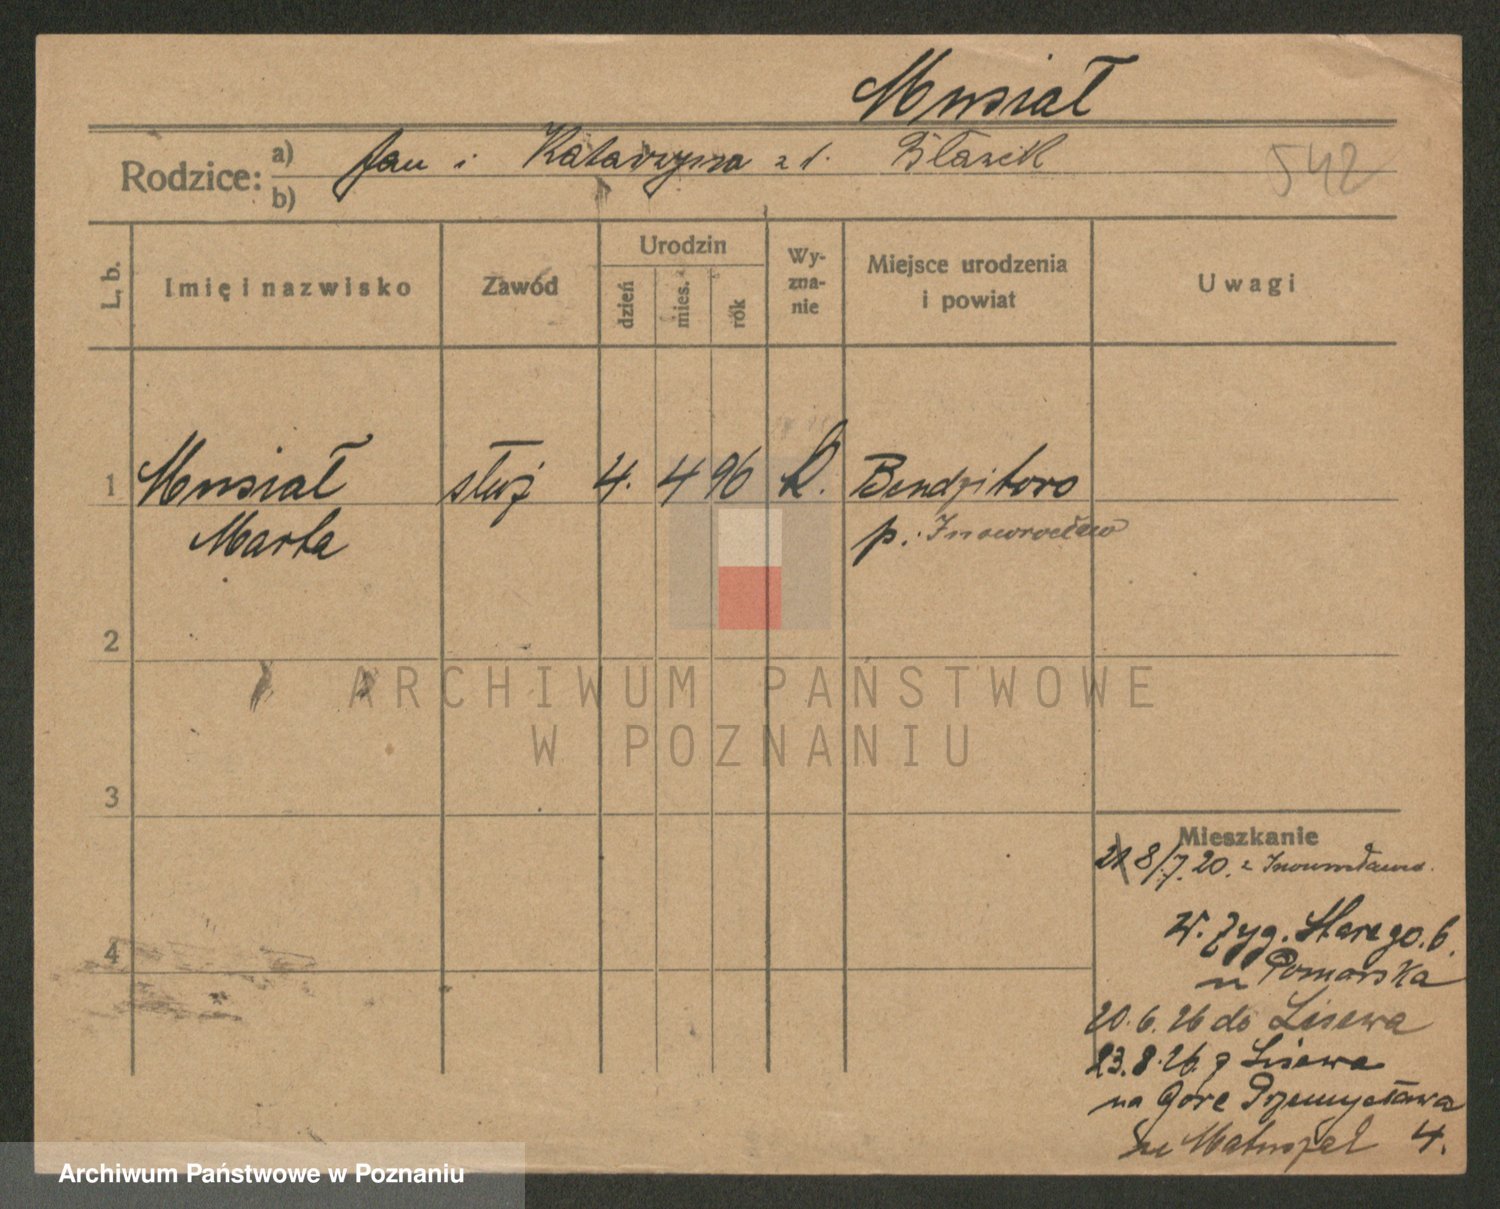 Musiał
Rodzice: a) Jan i Katarzyna z d. Błazek
b)
542
L. b.
Imię i nazwisko
Zawód
Urodzin
dzień
mies.
rók
Wy-
zna-
nie
Miejsce urodzenia
i powiat
Uwagi
1 Musiał służ 4. 4 96 k. Bendzitowo
Marta p. Inowrocław
2
3
4
ARCHIWUM PAŃSTWOWE
W POZNANIU
Mieszkanie
8/7. 20. z Inowrocławia.
W. Zyg. Starego. 6.
u Pomorska
20. 6. 26 do Lisewa
23. 8. 26. z Lisewa
na Górę Przemysława
4.
Archiwum Państwowe w Poznaniu